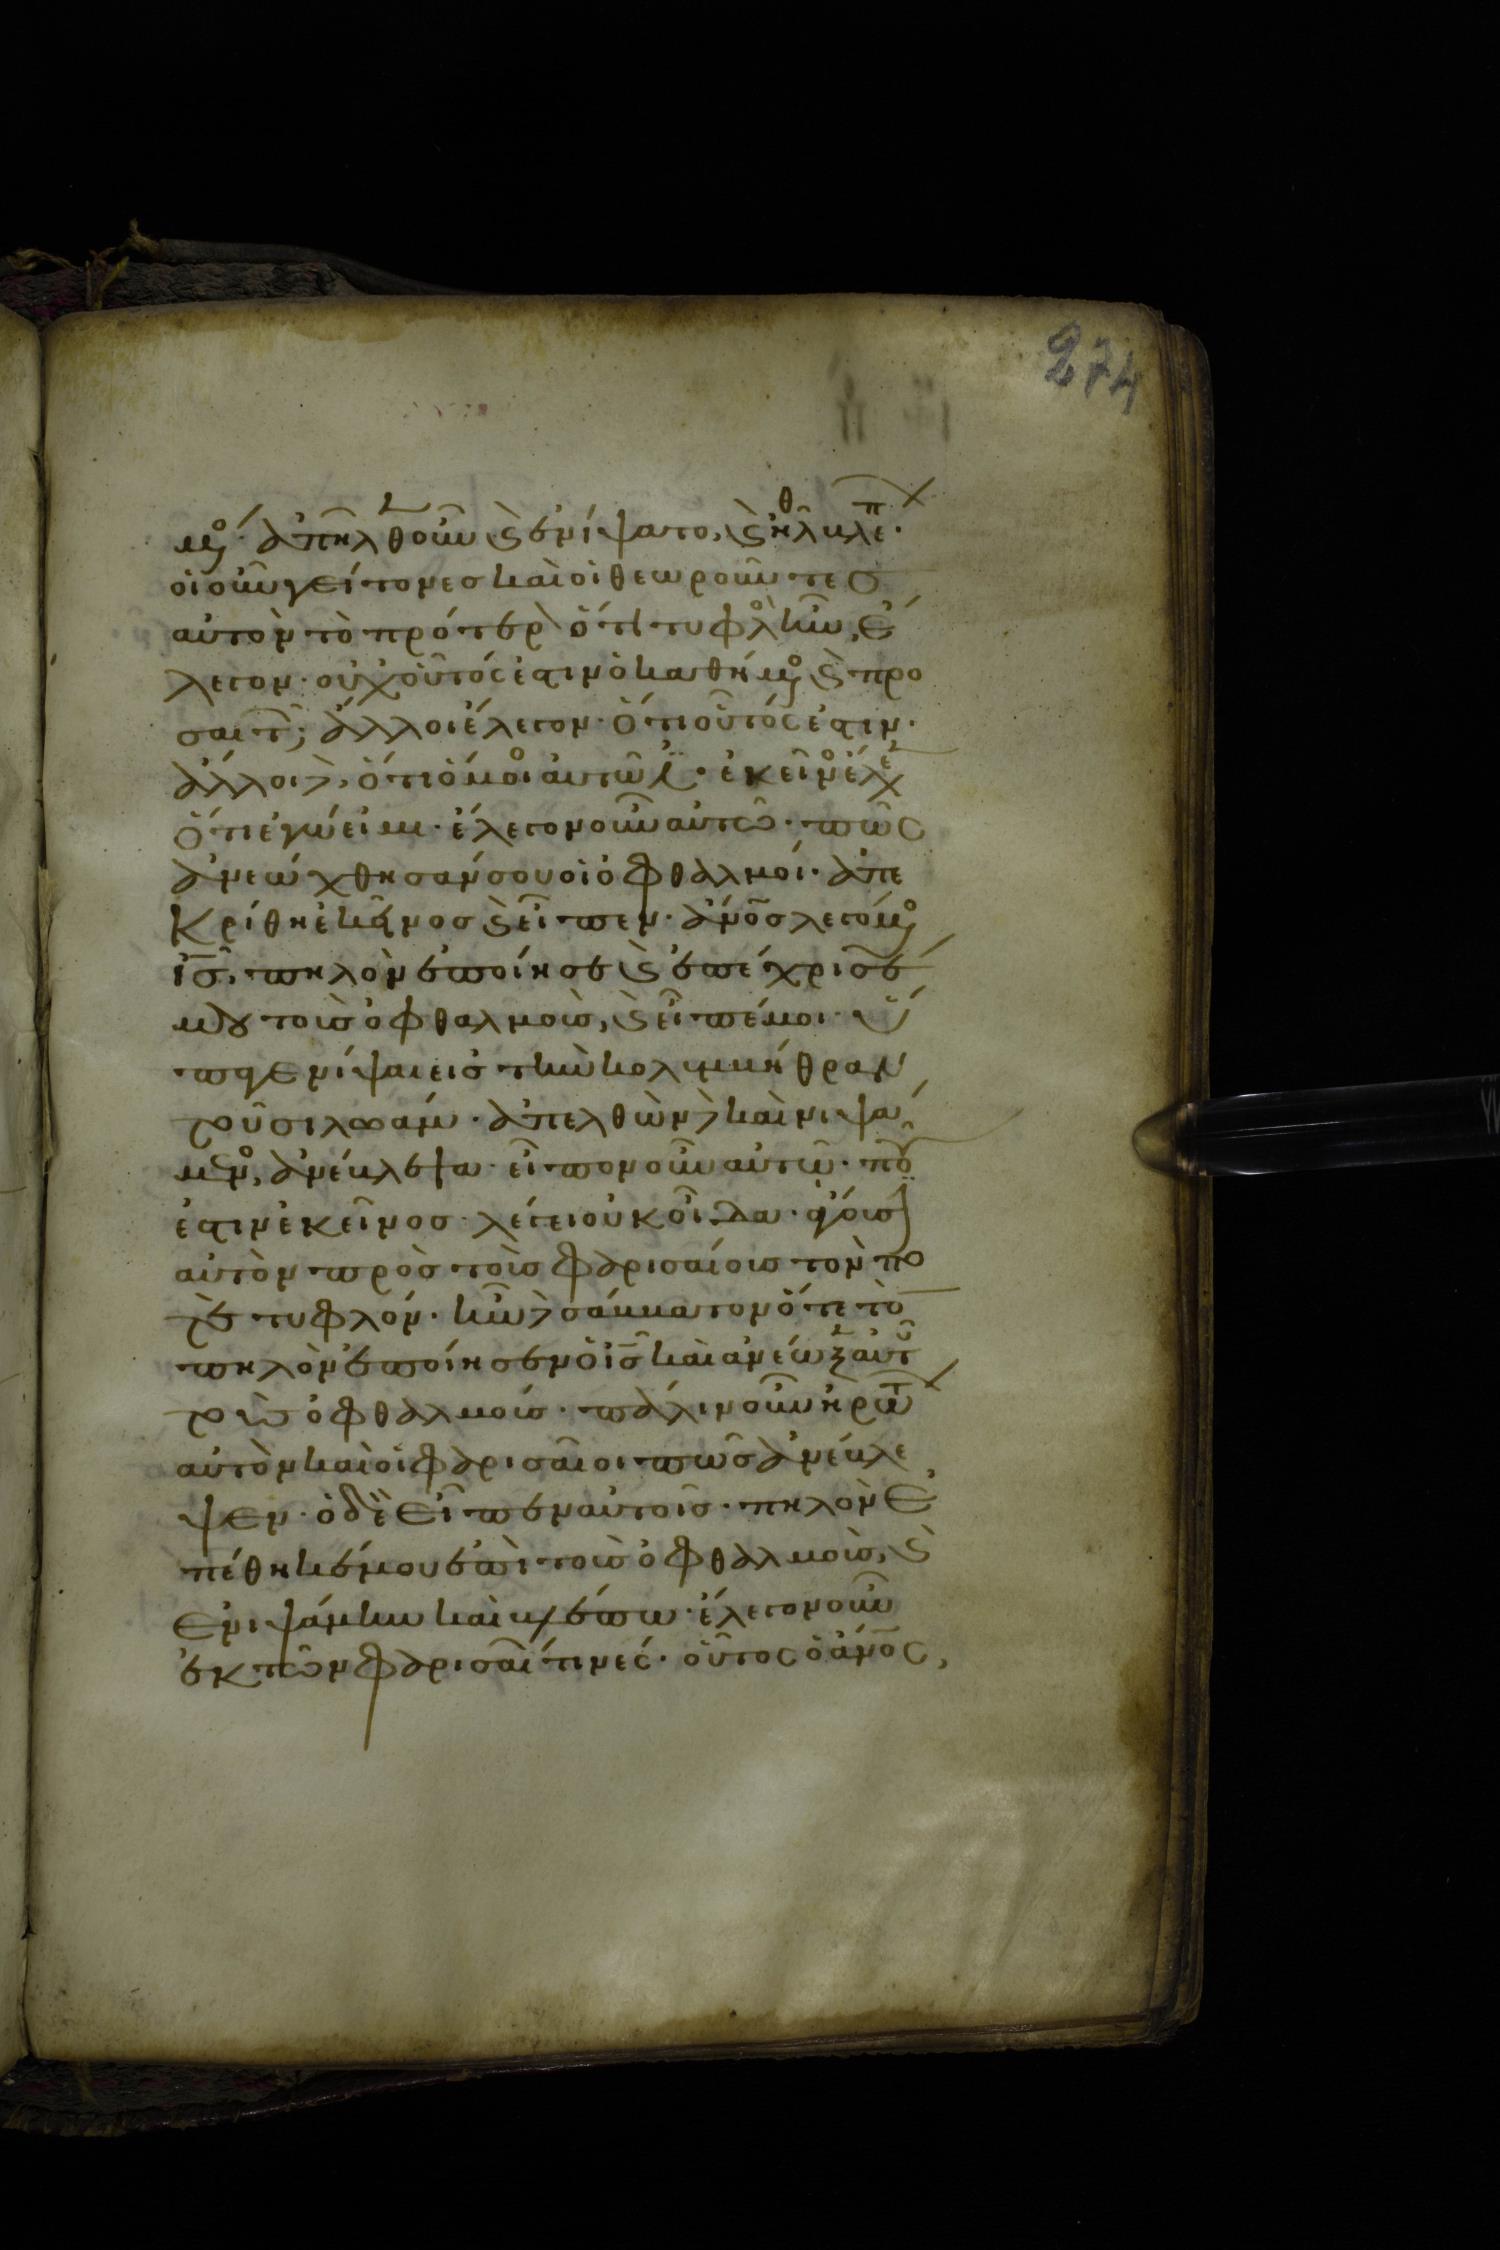 274
μεν(ος)· ἀπῆλθ(εν) οὖν (καὶ) ἐνίψατο, (καὶ) ἦλθ(ε) βλέπ(ων)·
οἱ οὖν γείτονες καὶ οἱ θεωροῦντες
αὐτὸν τὸ πρότερ(ον) ὅτι τυφλὸ(ς) ἦν, ἔ
λεγον· οὐχ οὗτός ἐστιν ὁ καθήμεν(ος) (καὶ) προ
σαιτ(ῶν); ἄλλοι ἔλεγον· ὅτι οὗτός ἐστιν·
ἄλλοι δὲ, ὅτι ὅμοι(ος) αὐτῶ ἐ(στιν)· ἐκεῖν(ος) ἔλεγ(εν)
ὅτι ἐγώ εἰμι· ἔλεγον οὖν αὐτῶ· πῶς
ἀνεώχθησάν σου οἱ ὀφθαλμοί· ἀπε
κρίθη ἐκεῖνος (καὶ) εἶπεν· ἄνος λεγόμεν(ος)
ις, πηλὸν ἐποίησε (καὶ) ἐπέχρισέ
μου τοὺς ὀφθαλμοὺς, (καὶ) εἶπέ μοι· ὕ
παγε νίψαι εἰς τὴν κολυμβήθραν
τοῦ σιλωάμ· ἀπελθὼν δὲ καὶ νιψά
μεν(ος), ἀνέβλεψα· εἶπον οὖν αὐτῶ· ποῦ
ἐστιν ἐκεῖνος· λέγει οὐκ οἶδα· ἄγουσ(ιν)
αὐτὸν πρὸς τοὺς φαρισαίους τόν πο
τὲ τυφλόν· ἦν δὲ σάββατον ὅτε τὸ(ν)
πηλὸν ἐποίησεν ὁ ις καὶ ἀνέωξ(εν) αὐτοῦ
τοὺς ὀφθαλμούς· πάλιν οὖν ἠρώτ(ων)
αὐτὸν καὶ οἱ φαρισαῖοι πῶς ἀνέβλε
ψεν· ὁ δὲ εἶπεν αὐτοῖς· πηλὸν ἐ
πέθηκέ μου ἐπὶ τοὺς ὀφθαλμοὺς, (καὶ)
ἐνιψάμην καὶ βλέπω· ἔλεγον οὖν
ἐκ τῶν φαρισαί(ων) τινές· οὗτος ὁ ἄνος,